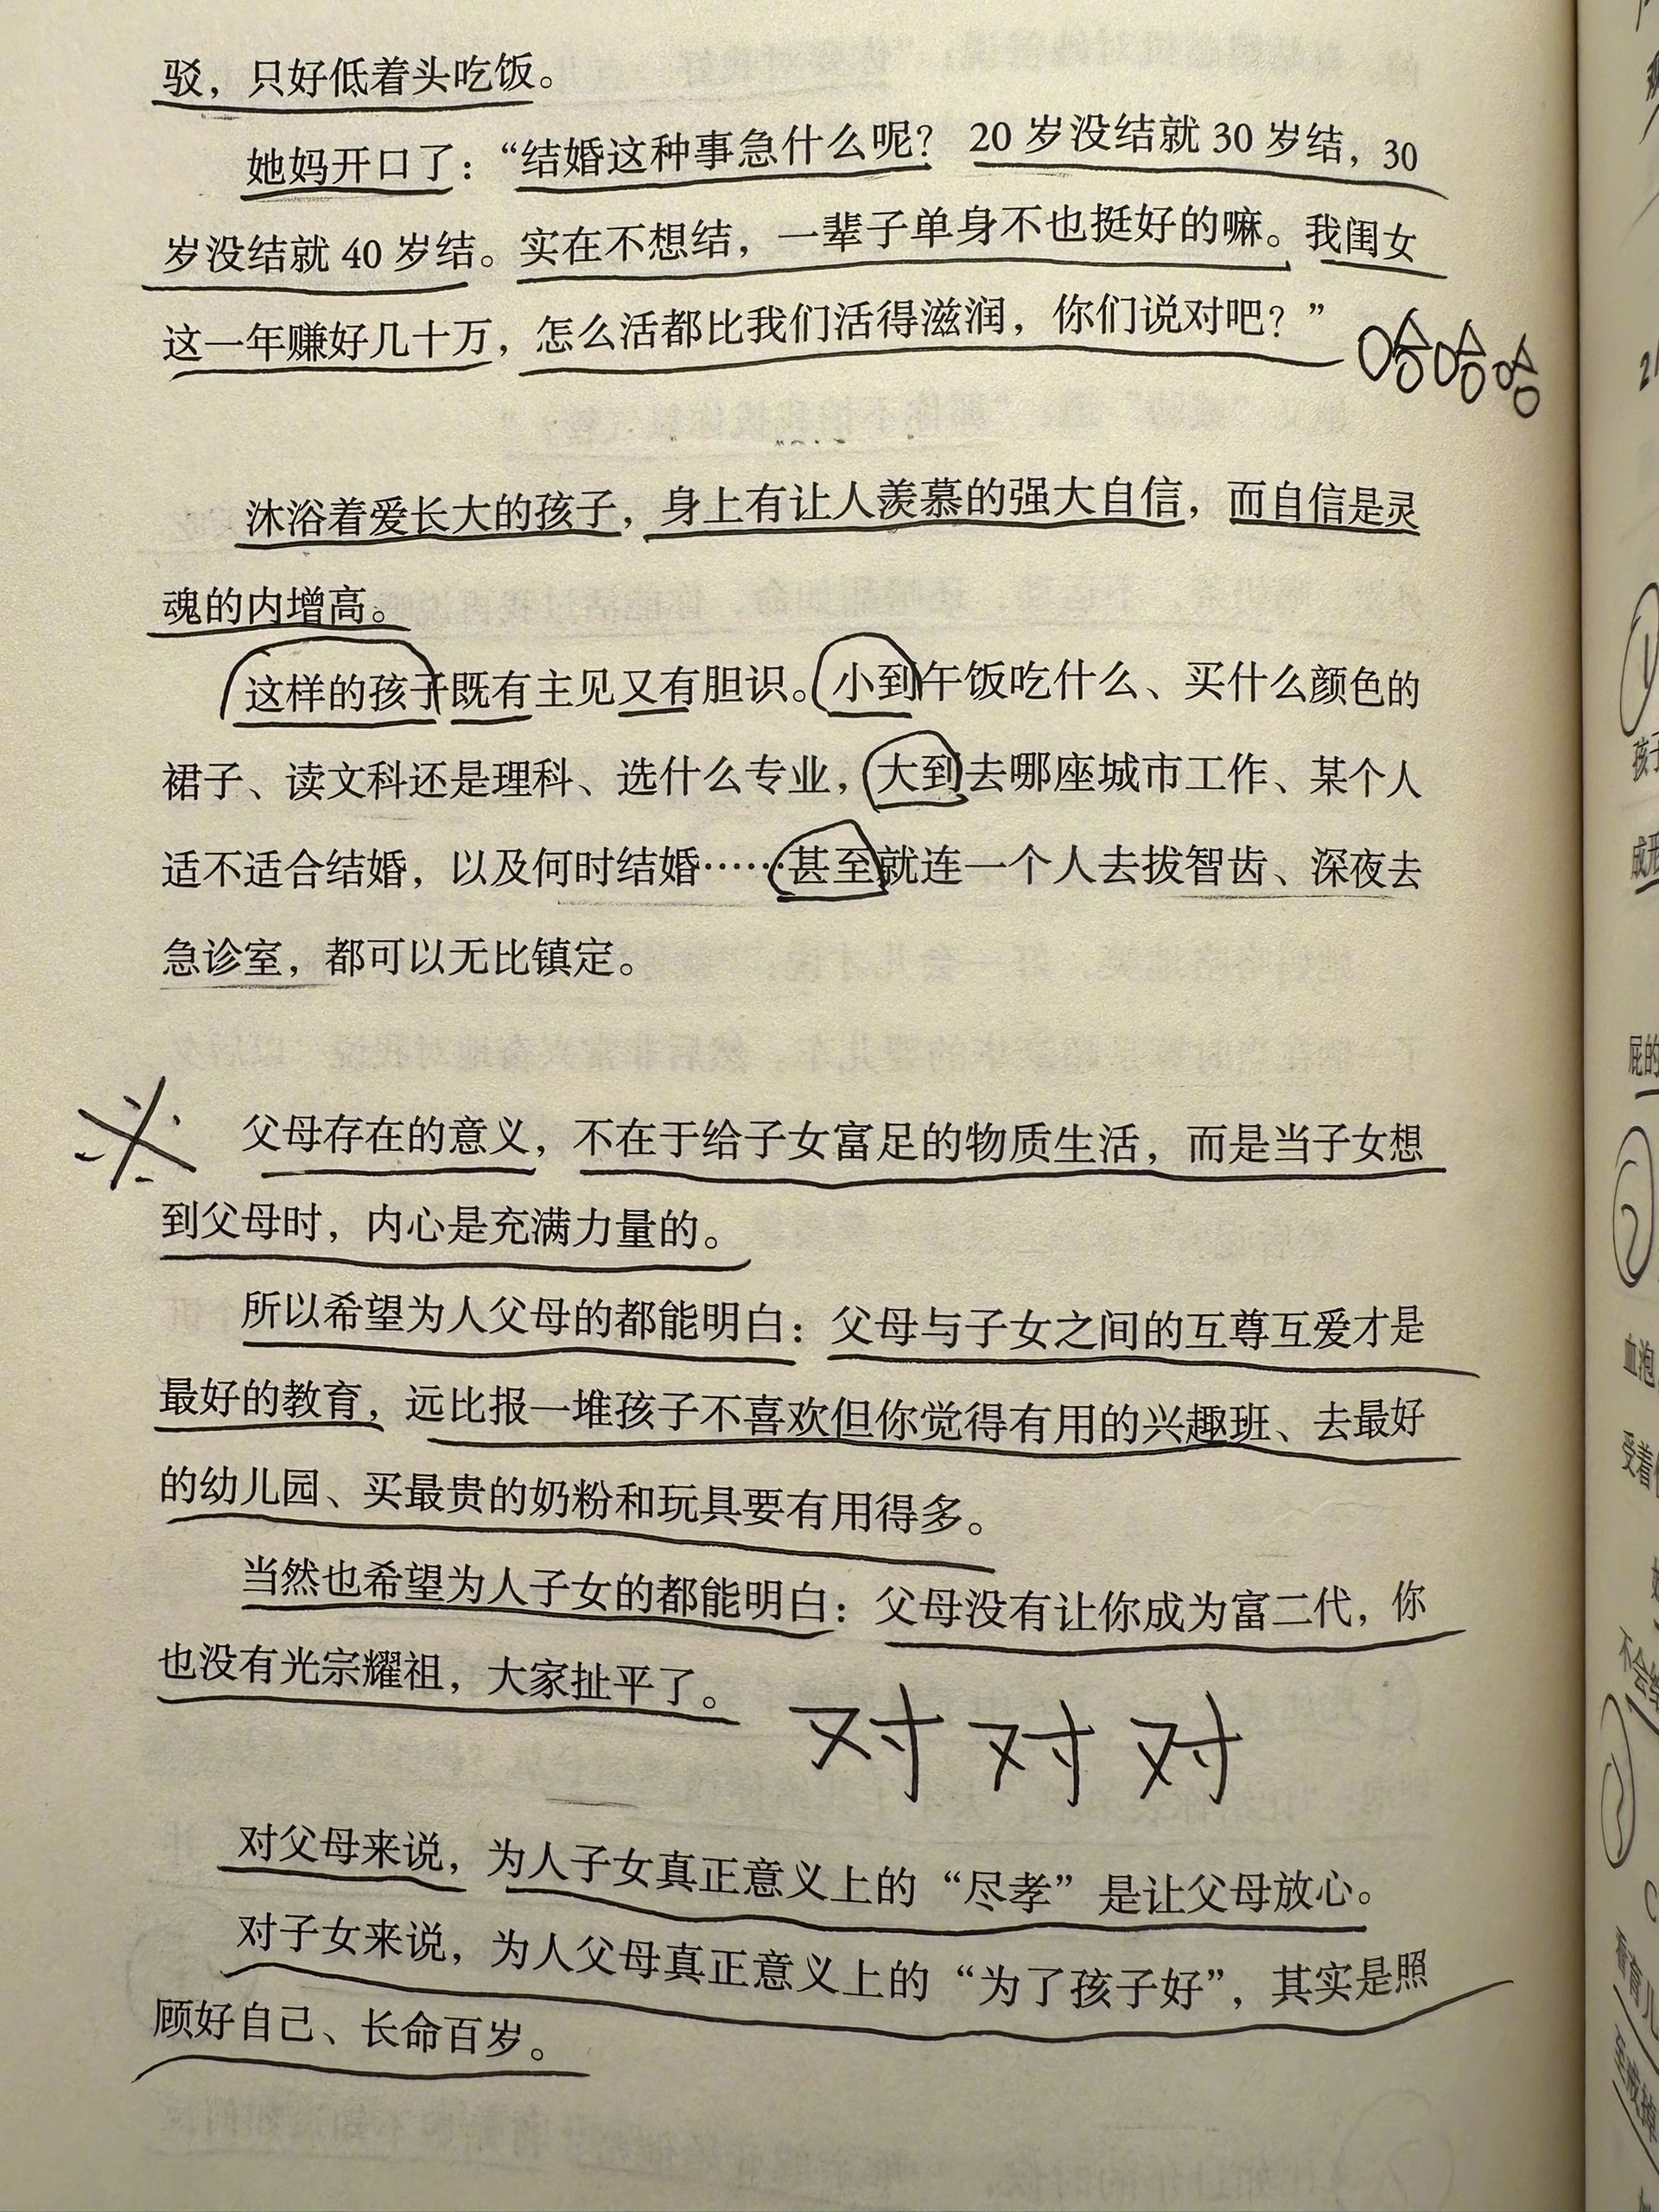 驳，只好低着头吃饭。
她妈开口了：“结婚这种事急什么呢？ 20 岁没结就 30 岁结，30
岁没结就 40 岁结。实在不想结，一辈子单身不也挺好的嘛。我闺女
这一年赚好几十万，怎么活都比我们活得滋润，你们说对吧？”
哈哈哈
沐浴着爱长大的孩子，身上有让人羡慕的强大自信，而自信是灵
魂的内增高。
这样的孩子既有主见又有胆识。小到午饭吃什么、买什么颜色的
裙子、读文科还是理科、选什么专业，大到去哪座城市工作、某个人
适不适合结婚，以及何时结婚……甚至就连一个人去拔智齿、深夜去
急诊室，都可以无比镇定。
父母存在的意义，不在于给子女富足的物质生活，而是当子女想
到父母时，内心是充满力量的。
所以希望为人父母的都能明白：父母与子女之间的互尊互爱才是
最好的教育，远比报一堆孩子不喜欢但你觉得有用的兴趣班、去最好
的幼儿园、买最贵的奶粉和玩具要有用得多。
当然也希望为人子女的都能明白：父母没有让你成为富二代，你
也没有光宗耀祖，大家扯平了。
对对对
对父母来说，为人子女真正意义上的“尽孝”是让父母放心。
对子女来说，为人父母真正意义上的“为了孩子好”，其实是照
顾好自己、长命百岁。